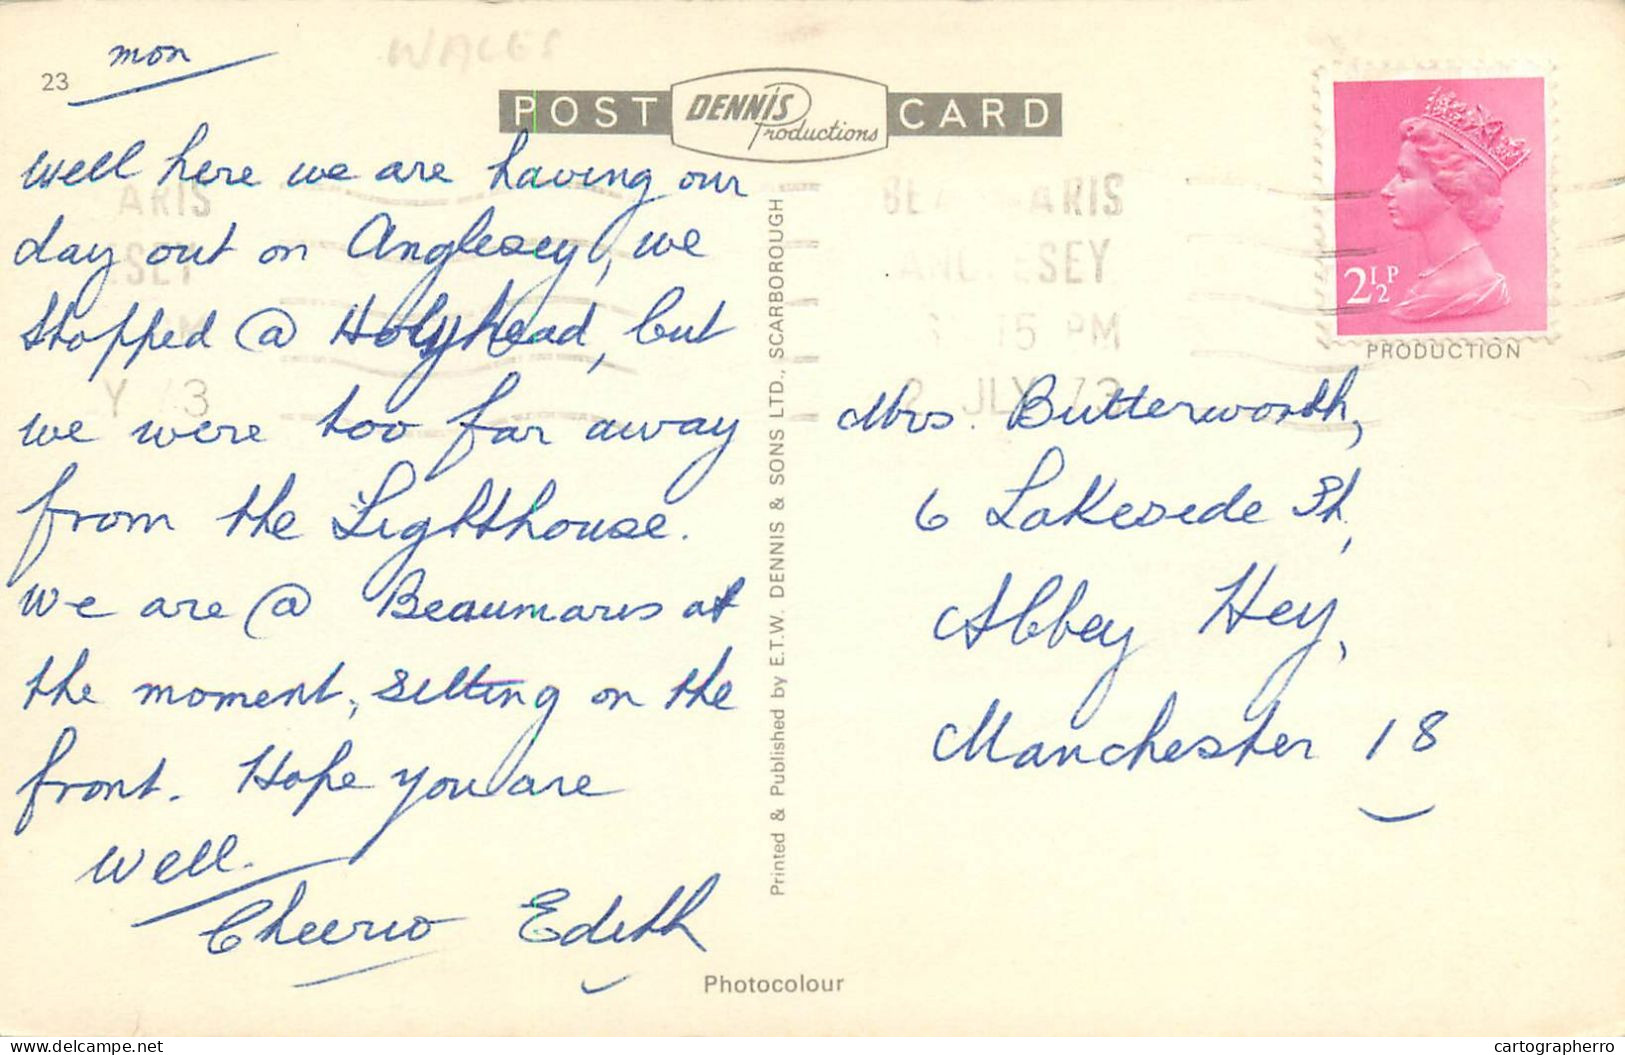 23
mon
WALES
POST DENNIS Productions CARD
well here we are having our
day out on Anglesey, we
stopped @ Holyhead, but
we were too far away
from the Lighthouse.
We are @ Beaumaris at
the moment, sitting on the
front. Hope you are
well.
Cheerio Edith
Printed & Published by E.T.W. DENNIS & SONS LTD., SCARBOROUGH
Photocolour
2½P
PRODUCTION
ARIS
ESEY
BEA ARIS
ANGLESEY
15 PM
2 JLY 73
Mrs. Butterworth,
6 Lakeside St,
Abbey Hey,
Manchester 18
delcampe.net
cartographerro